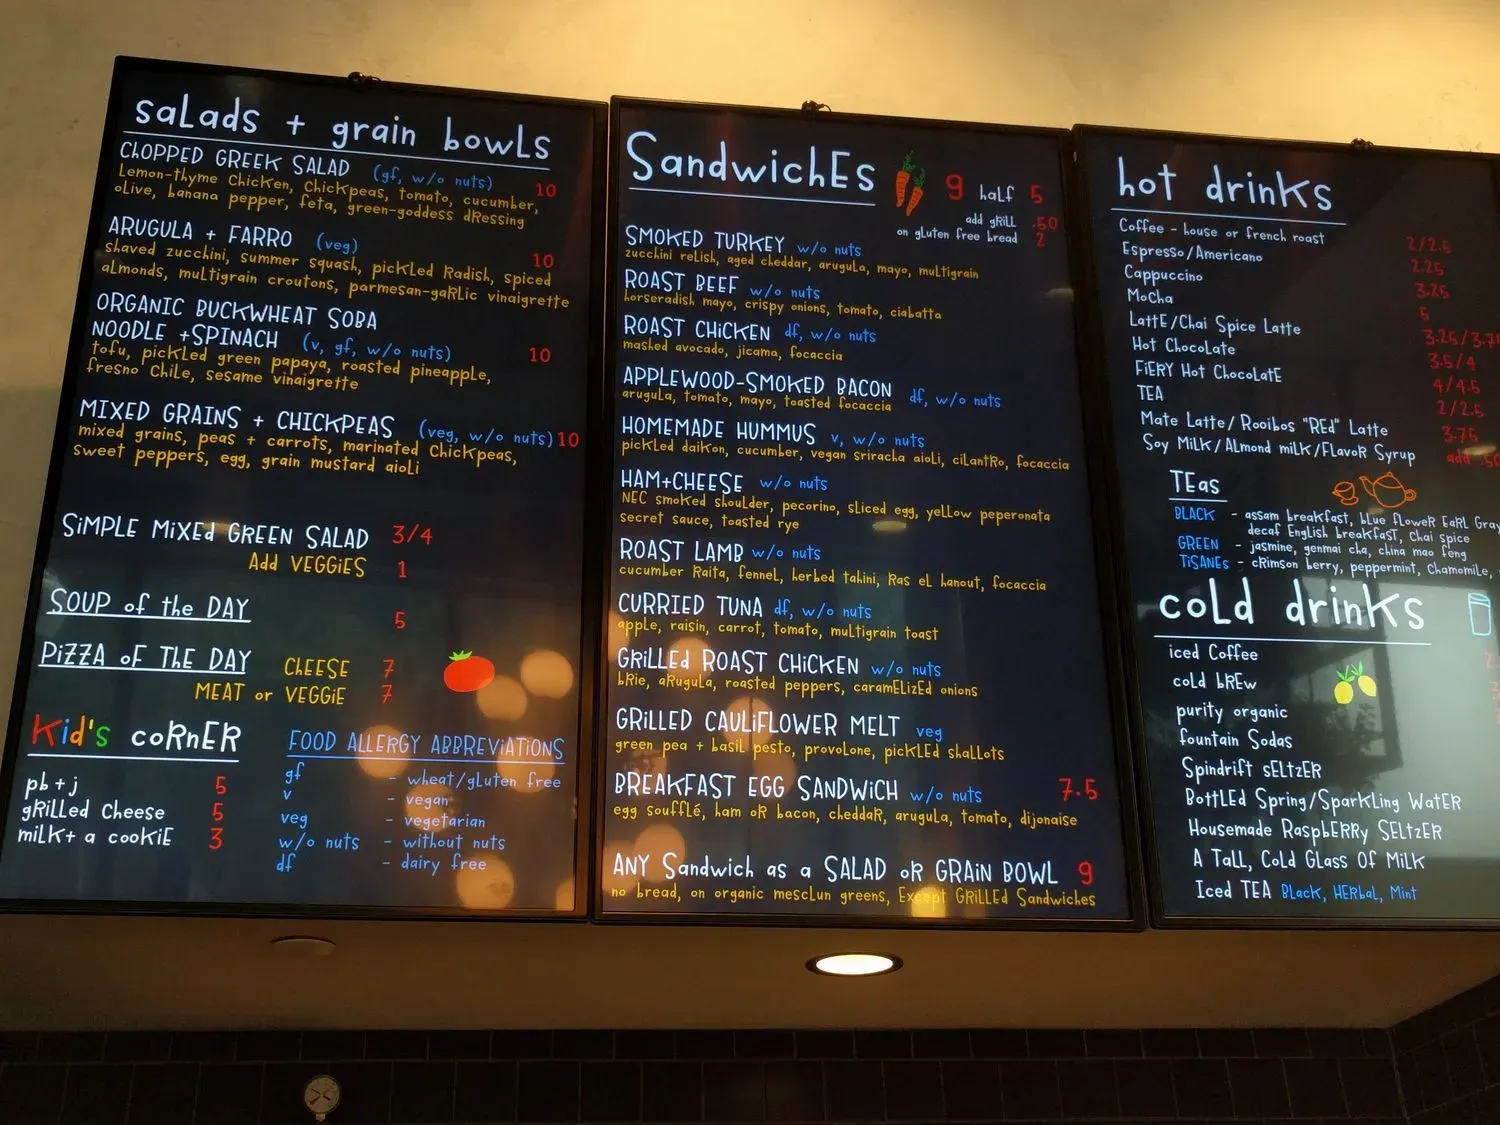 salads + grain bowls
CHOPPED GREEK SALAD (gf, w/o nuts) 10
Lemon-thyme Chicken, Chickpeas, tomato, cucumber,
olive, banana pepper, feta, green-goddess dRessing
ARUGULA + FARRO (veg) 10
shaved zucchini, summer squash, pickled Radish, spiced
almonds, multigrain croutons, parmesan-gaRlic vinaigrette
ORGANIC BUCKWHEAT SOBA
NOODLE +SPINACH (v, gf, w/o nuts) 10
tofu, pickled green papaya, roasted pineapple,
fresno Chile, sesame vinaigrette
MIXED GRAINS + CHICKPEAS (veg, w/o nuts) 10
mixed grains, peas + carrots, marinated Chickpeas,
sweet peppers, egg, grain mustard aioli
SiMPLE MiXEd GREEN SALAD 3/4
Add VEGGiES 1
SOUP of the DAY 5
PiZZA oF ThE DAY ChEESE 7
MEAT or VEGGiE 7
Kid's coRnER
pb+j 5
gRilled Cheese 5
milk+ a cookiE 3
FOOD ALLERGY ABBREViATiONS
gf - wheat/gluten free
v - vegan
veg - vegetarian
w/o nuts - without nuts
df - dairy free
SandwichEs 9 half 5
add gRill .50
on gluten free bread 2
SMOKED TURKEY w/o nuts
zucchini relish, aged cheddar, arugula, mayo, multigrain
ROAST BEEF w/o nuts
horseradish mayo, crispy onions, tomato, ciabatta
ROAST CHiCKEN df, w/o nuts
mashed avocado, jicama, focaccia
APPLEWOOD-SMOKED BACON df, w/o nuts
arugula, tomato, mayo, toasted focaccia
HOMEMADE HUMMUS v, w/o nuts
pickled daikon, cucumber, vegan sriracha aioli, cilantRo, focaccia
HAM+CHEESE w/o nuts
NEC smoked shoulder, pecorino, sliced egg, yellow peperonata
secret sauce, toasted rye
ROAST LAMB w/o nuts
cucumber Raita, fennel, herbed tahini, Ras el hanout, focaccia
CURRIED TUNA df, w/o nuts
apple, raisin, carrot, tomato, multigrain toast
GRiLLEd ROAST CHiCKEN w/o nuts
bRie, aRugula, roasted peppers, caramElizEd onions
GRiLLED CAULiFLOWER MELT veg
green pea + basil pesto, provolone, picklEd shallots
BREAKFAST EGG SANDWiCH w/o nuts 7.5
egg soufflé, ham oR bacon, cheddaR, arugula, tomato, dijonaise
ANY Sandwich as a SALAD oR GRAiN BOWL 9
no bread, on organic mesclun greens, Except GRiLLEd Sandwiches
hot drinks
Coffee - house or french roast 2/2.5
Espresso/Americano 2.25
Cappuccino 3.25
MoCha 5
LattE/Chai Spice Latte 3.25/3.7
Hot Chocolate 3.5/4
FiERY Hot ChocolatE 4/4.5
TEA 2/2.5
Mate Latte/ Rooibos "REd" Latte 3.75
Soy Milk/Almond milk/FlavoR Syrup add .50
TEas
BLACK - assam breakfast, blue floweR EaRl Gray
decaf English breakfast, Chai spice
GREEN - jasmine, genmai cha, china mao feng
TiSANEs - cRimson berry, peppermint, Chamomile,
cold drinks
iced Coffee
cold bREw
purity organic
fountain Sodas
Spindrift sEltzER
BottlEd Spring/Sparkling WatER
Housemade RaspbERRy SEltzER
A Tall, Cold Glass Of Milk
Iced TEA Black, HERbal, Mint